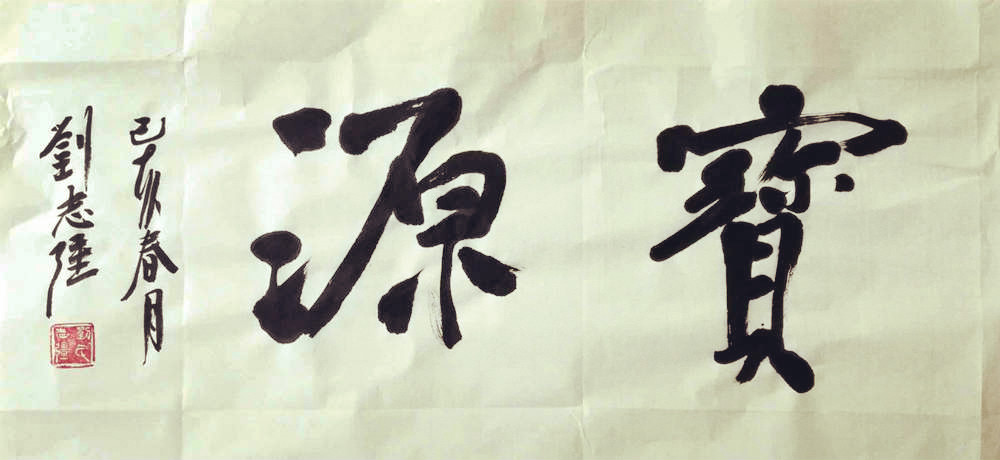 寶源
己亥春月
劉志陸